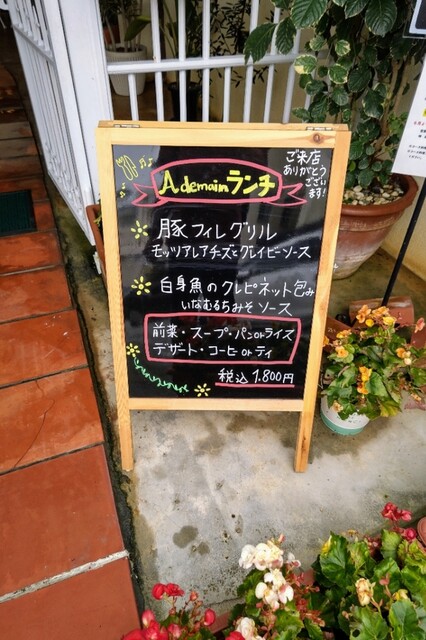 ご来店
ありがとう
ございます!
A demain ランチ
豚フィレグリル
モッツアレアチーズとグレイビーソース
白身魚のクレピネット包み
いなむるちみそ ソース
前菜・スープ・パンorライス
デザート・コーヒorティ
税込 1.800円